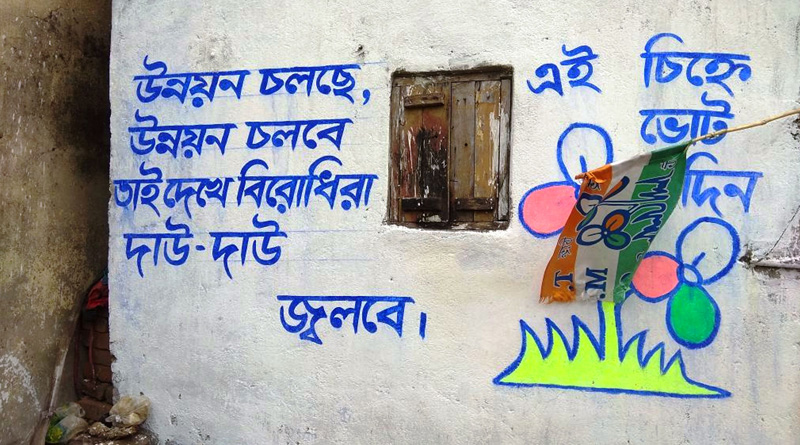 উন্নয়ন চলছে,
উন্নয়ন চলবে
তাই দেখে বিরোধিরা
দাউ-দাউ
জ্বলবে।
এই চিহ্নে
ভোট
দিন
T.
M